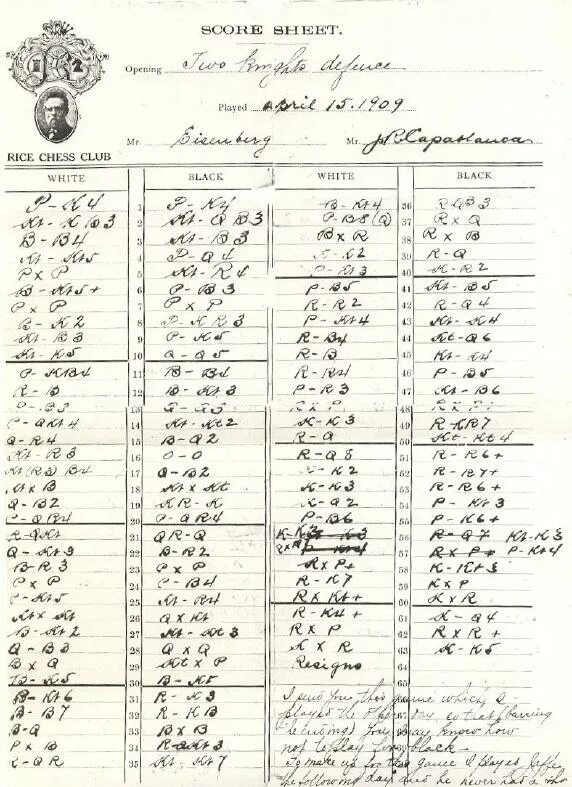 SCORE SHEET.
Opening Two Knights defence
Played April 15. 1909
Mr. Eisenberg Mr. JR Capablanca
RICE CHESS CLUB
WHITE BLACK WHITE BLACK
P-K4 1 P-K4 B-Kt4 36 R-QB3
Kt-KB3 2 Kt-QB3 P-B8(Q) 37 R x Q
B-B4 3 Kt-B3 B x R 38 R x B
Kt-Kt5 4 P-Q4 K-K2 39 R-Q
P x P 5 Kt-R4 P-Kt3 40 K-R2
B-Kt5+ 6 P-B3 P-B5 41 Kt-B5
P x P 7 P x P R-R2 42 R-Q4
B-K2 8 P-KR3 P-Kt4 43 Kt-K4
Kt-B3 9 P-K5 R-B4 44 Kt-Q6
Kt-K5 10 Q-Q5 R-B 45 Kt-K4
P-KB4 11 B-B4 R-R4 46 P-B5
R-B 12 B-Kt3 P-R3 47 Kt-B6
P-B3 13 R x P 48
P-QKt4 14 Kt-Kt2 K-K3 49 R-KR7
Q-R4 15 B-Q2 R-Q 50 Kt-Kt4
Kt-R3 16 O-O R-Q8 51 R-R6+
Kt(R3)B4 17 Q-B2 K-K2 52 R-R7+
Kt x B 18 Kt x Kt K-K3 53 R-R6+
Q-B2 19 KR-K K-Q2 54 P-Kt3
P-QR4 20 P-QR4 P-B6 55 P-K6+
R-QKt 21 QR-Q 56 R-Q7 Kt-K3
Q-Kt3 22 B-R2 R x R 57 R x P+ P-Kt4
B-R3 23 P x P R x P+ 58 K-Kt3
P x P 24 P-B4 R-K7 59 K x P
P-Kt5 25 Kt-R4 R x Kt+ 60 K x R
Kt x Kt 26 Q x Kt R-K4+ 61 K-Q4
B-Kt2 27 Kt-Kt3 R x P 62 R x R+
Q-B3 28 Q x Q K x R 63 K-K5
B x Q 29 Kt x P Resigns 64
B-K5 30 B-K5 65
B-Kt6 31 R-K3 I send you this game which I
B-B7 32 R-KB played the other day so that (barring
B-Q 33 B x B you may know how
P x B 34 R-Kt3 not to play for black—
R-QR 35 Kt-Kt7 To make up for this game I played Jaffe
the following day and he never had a sho